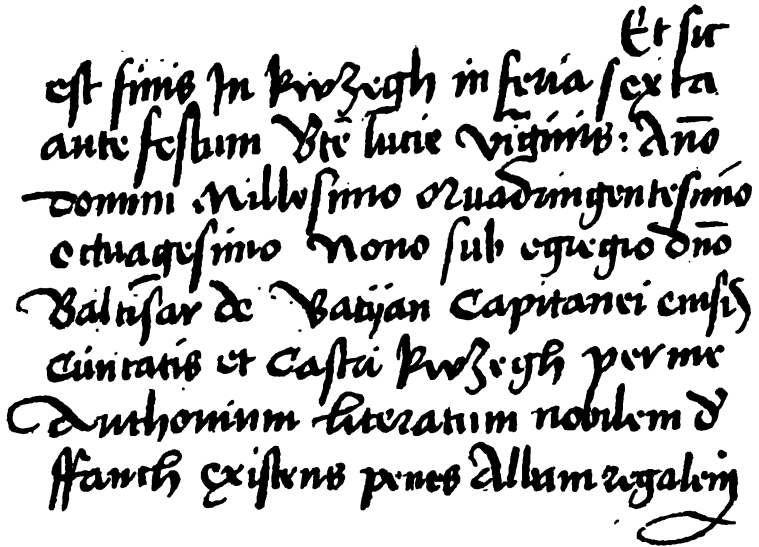 Et sic
est finis In kwzegh in feria sexta
ante festum Bte lucie virginis: Año
domini Millesimo Quadringentesimo
octuagesimo Nono sub egregio dño
Baltisar de Batyan Capitanei eiusd
Ciuitatis et Castri kwzegh per me
Anthonium literatum nobilem d
ffanch existens penes Albam regalem